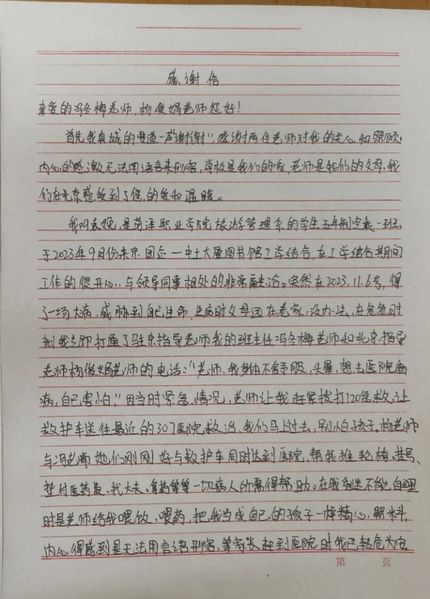 感谢信
亲爱的冯冬梅老师，杨俊娟老师您好！
首先我真诚的要道一声谢谢！感谢两位老师对我的关心和照顾，
内心的感激无法用语言来形容，学校是我们的家，老师是我们的父母，我
们在北京感受到了您的爱和温暖。
我叫 是菏泽职业学院旅游管理系的学生五年制空乘一班，
于2023年9月份来京国企一中土大厦图书馆工学结合，在工学结合期间
工作的很开心，与领导同事相处的非常融洽。突然在2023.11.6号，得
了一场大病，威胁到自己生命，生病时父母远在老家，没办法，在危急时
刻我立即打通了驻京指导老师我的班主任冯冬梅老师和北京指导
老师杨俊娟老师的电话："老师，我身体不舒服，头晕，想去医院看
病，自己害怕"因当时紧急情况，老师让我赶紧拨打120急救，让
救护车送往最近的307医院救治，我们马上过去，别怕孩子，杨老师
与冯老师她们刚刚好与救护车同时达到医院，帮我推轮椅，挂号、
垫付医药费，找大夫、拿药等等一切病人所需得帮助。在我自己不能自理
时是老师给我喂饭、喂药，把我当成自己的孩子一样精心，照料，
内心得感到是无法用言语形容，等家长赶到医院时我已转危为安
第 页